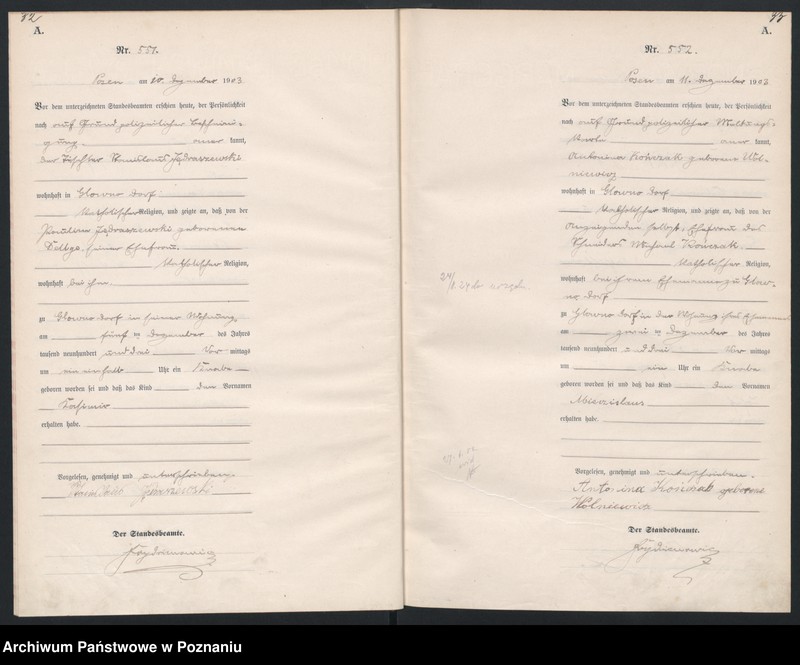 32
A.
Nr. 551.
Posen am 10. Dezember 1903
Vor dem unterzeichneten Standesbeamten erschien heute, der Persönlichkeit
nach auf Grund polizeilicher Bescheini-
gung anerkannt,
der Tischler Stanislaus Jędraszewski
wohnhaft in Glowno Dorf
katholischer Religion, und zeigte an, daß von der
Paulina Jędraszewski geborenen
seiner Ehefrau
katholischer Religion,
wohnhaft bei ihm
zu Glowno Dorf in seiner Wohnung
am fünften Dezember des Jahres
tausend neunhundert und drei Vor mittags
um ein einhalb Uhr ein Knabe
geboren worden sei und daß das Kind den Vornamen
Kasimir
erhalten habe.
Vorgelesen, genehmigt und unterschrieben.
Der Standesbeamte.
33
A.
Nr. 552.
Posen am 11. Dezember 1903
Vor dem unterzeichneten Standesbeamten erschien heute, der Persönlichkeit
nach auf Grund polizeilicher Meldungs-
karte anerkannt,
Antonina Kończak geborene Wol-
niewicz
wohnhaft in Glowno Dorf
katholischer Religion, und zeigte an, daß von der
Anzeigenden selbst, Ehefrau des
Schneiders Michael Kończak
katholischer Religion,
wohnhaft bei ihrem Ehemanne zu Glow-
no Dorf
zu Glowno Dorf in der Wohnung ihres Ehemannes
am zweiten Dezember des Jahres
tausend neunhundert und drei Vor mittags
um ein Uhr ein Knabe
geboren worden sei und daß das Kind den Vornamen
Miecislaus
erhalten habe.
Vorgelesen, genehmigt und unterschrieben.
Antonina Kończak geborene
Wolniewicz
Der Standesbeamte.
Archiwum Państwowe w Poznaniu